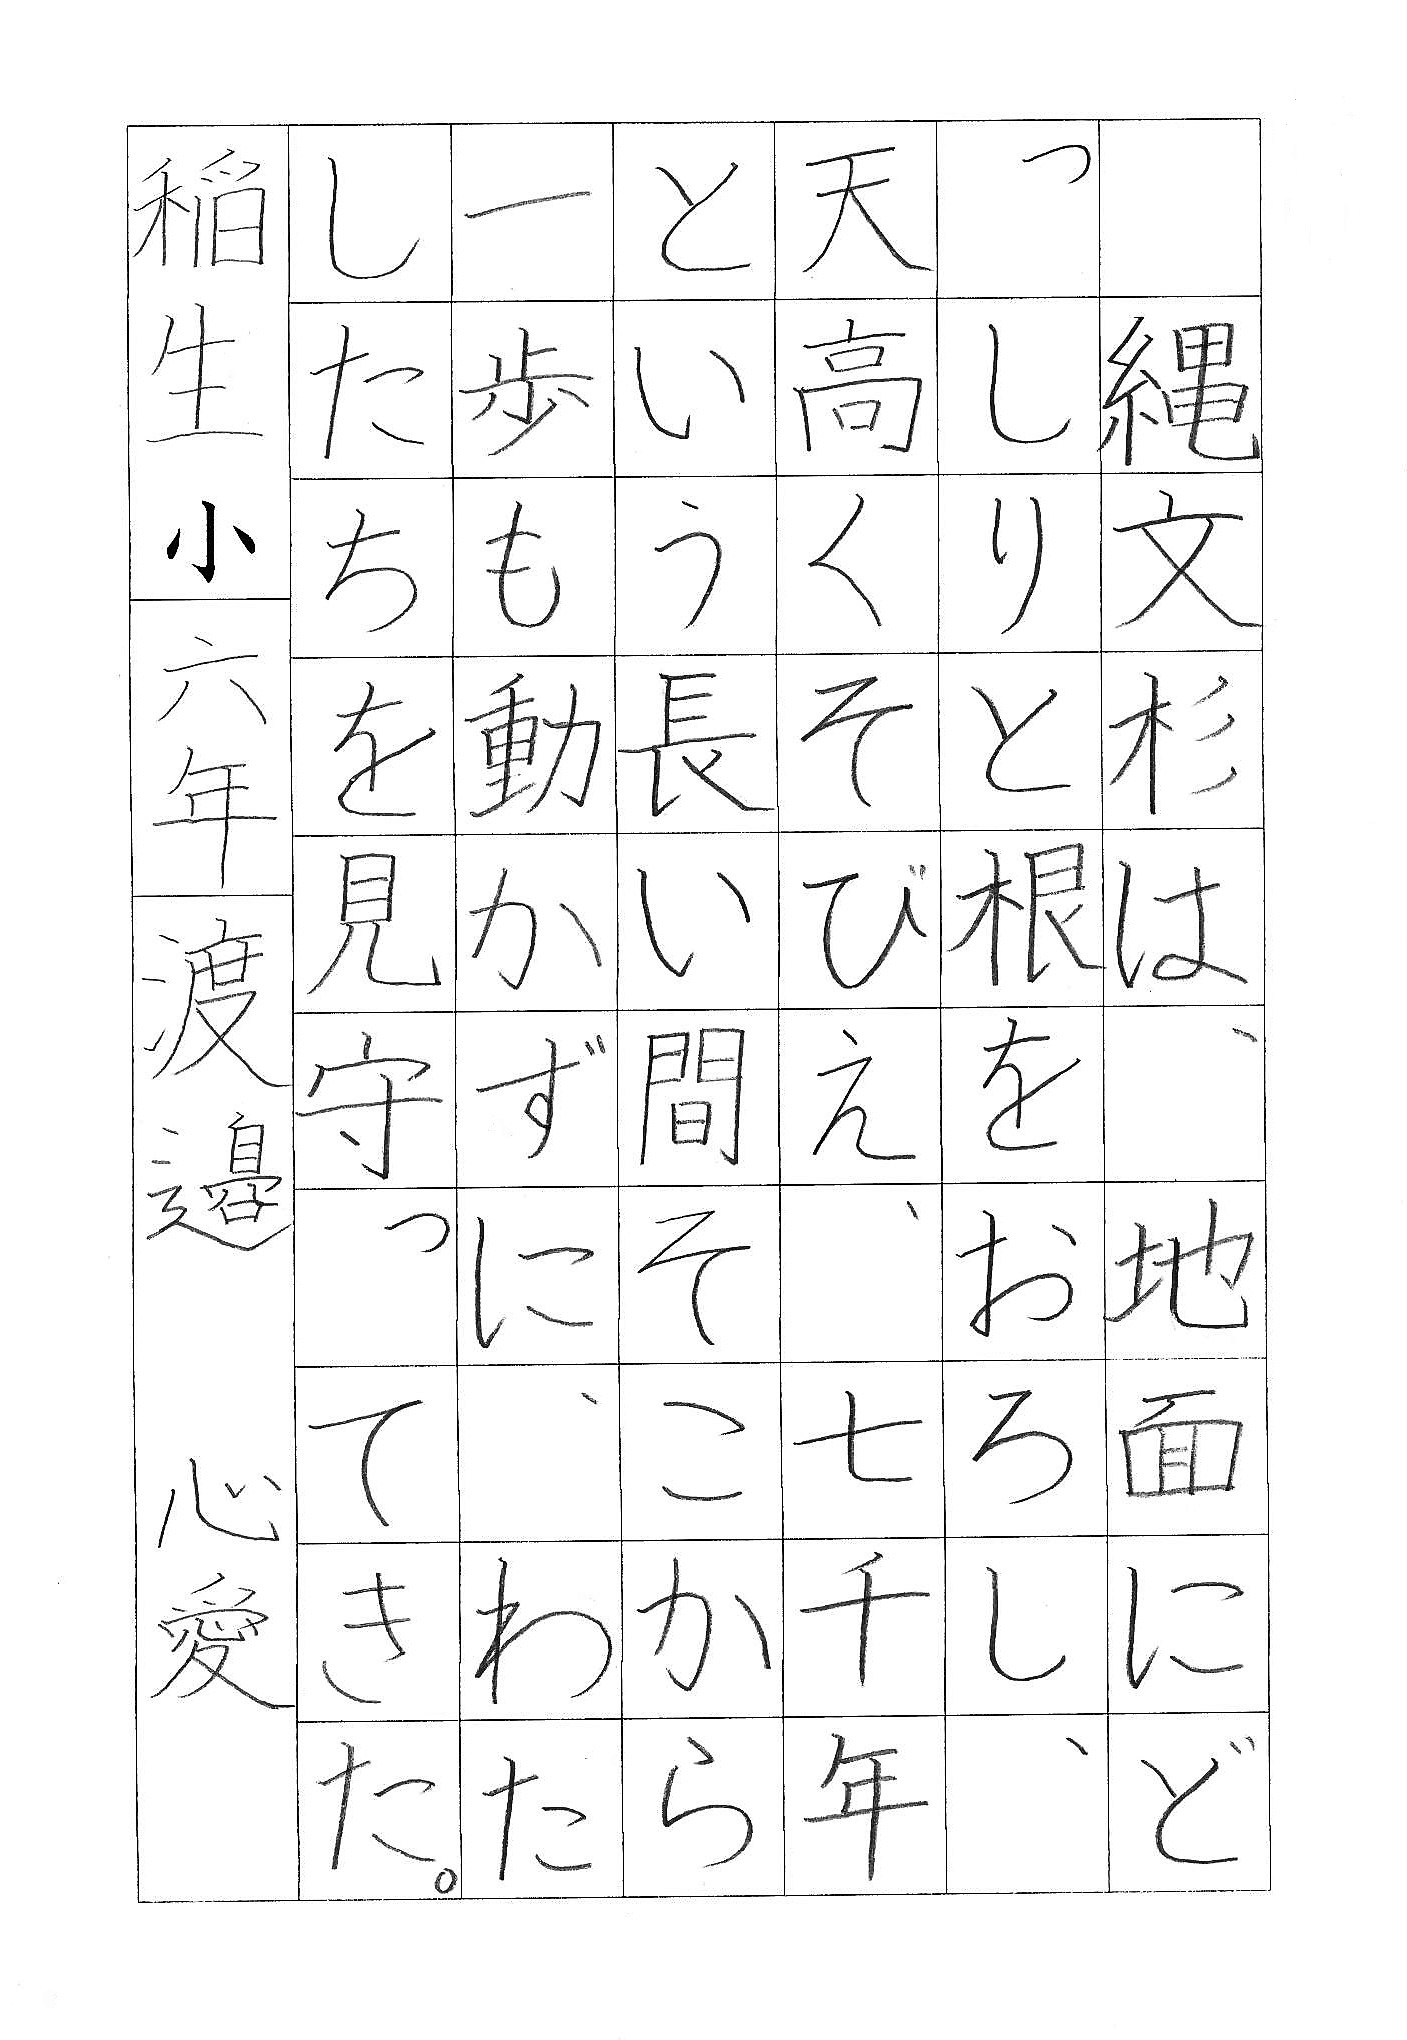 縄文杉は、地面にど
っしりと根をおろし、
天高くそびえ、七千年
という長い間そこから
一歩も動かずに、わた
したちを見守ってきた。
稲生小 六年 渡邉 心愛